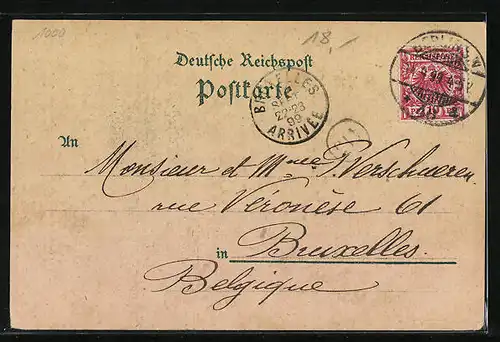 1000
18,-
Deutsche Reichspost
Postkarte
BRUXELLES
22-23
99
ARRIVÉE
An
Monsieur et Mme J. Verschueren
rue Véronèse 61
in Bruxelles.
Belgique